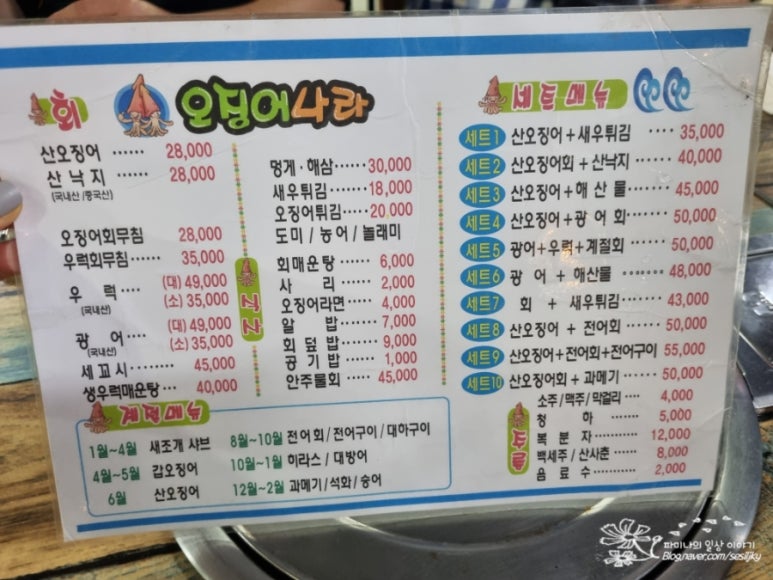 회
오징어나라
산오징어 ······ 28,000
산 낙지 ······ 28,000
(국내산/중국산)
오징어회무침 28,000
우럭회무침 ···· 35,000
우 럭 ···· (대) 49,000
(국내산) (소) 35,000
광 어 ···· (대) 49,000
(국내산) (소) 35,000
세꼬시 ······· 45,000
생우럭매운탕 ··· 40,000
멍게·해삼 ······ 30,000
새우튀김 ······ 18,000
오징어튀김 ···· 20,000
도미 / 농어 / 놀래미
회매운탕 ····· 6,000
사 리 ······ 2,000
오징어라면 ···· 4,000
알 밥 ······ 7,000
회덮밥 ······ 9,000
공기밥 ······ 1,000
안주물회 ···· 45,000
세트메뉴
세트1 산오징어 + 새우튀김 ···· 35,000
세트2 산오징어회 + 산낙지 ···· 40,000
세트3 산오징어 + 해산물 ····· 45,000
세트4 산오징어 + 광어회 ····· 50,000
세트5 광어+우럭+계절회 ····· 50,000
세트6 광 어 + 해산물 ······· 48,000
세트7 회 + 새우튀김 ······ 43,000
세트8 산오징어 + 전어회 ····· 50,000
세트9 산오징어+전어회+전어구이 55,000
세트10 산오징어회 + 과메기 ····· 50,000
소주/맥주/막걸리 ···· 4,000
청 하 ········ 5,000
복 분 자 ········ 12,000
백세주/산사춘 ······ 8,000
음 료 수 ········ 2,000
계절메뉴
1월~4월 새조개 샤브
4월~5월 갑오징어
6월 산오징어
8월~10월 전어회/전어구이/대하구이
10월~1월 히라스/대방어
12월~2월 과메기/석화/숭어
파미나의 일상 이야기
Blog.naver.com/sesiljky